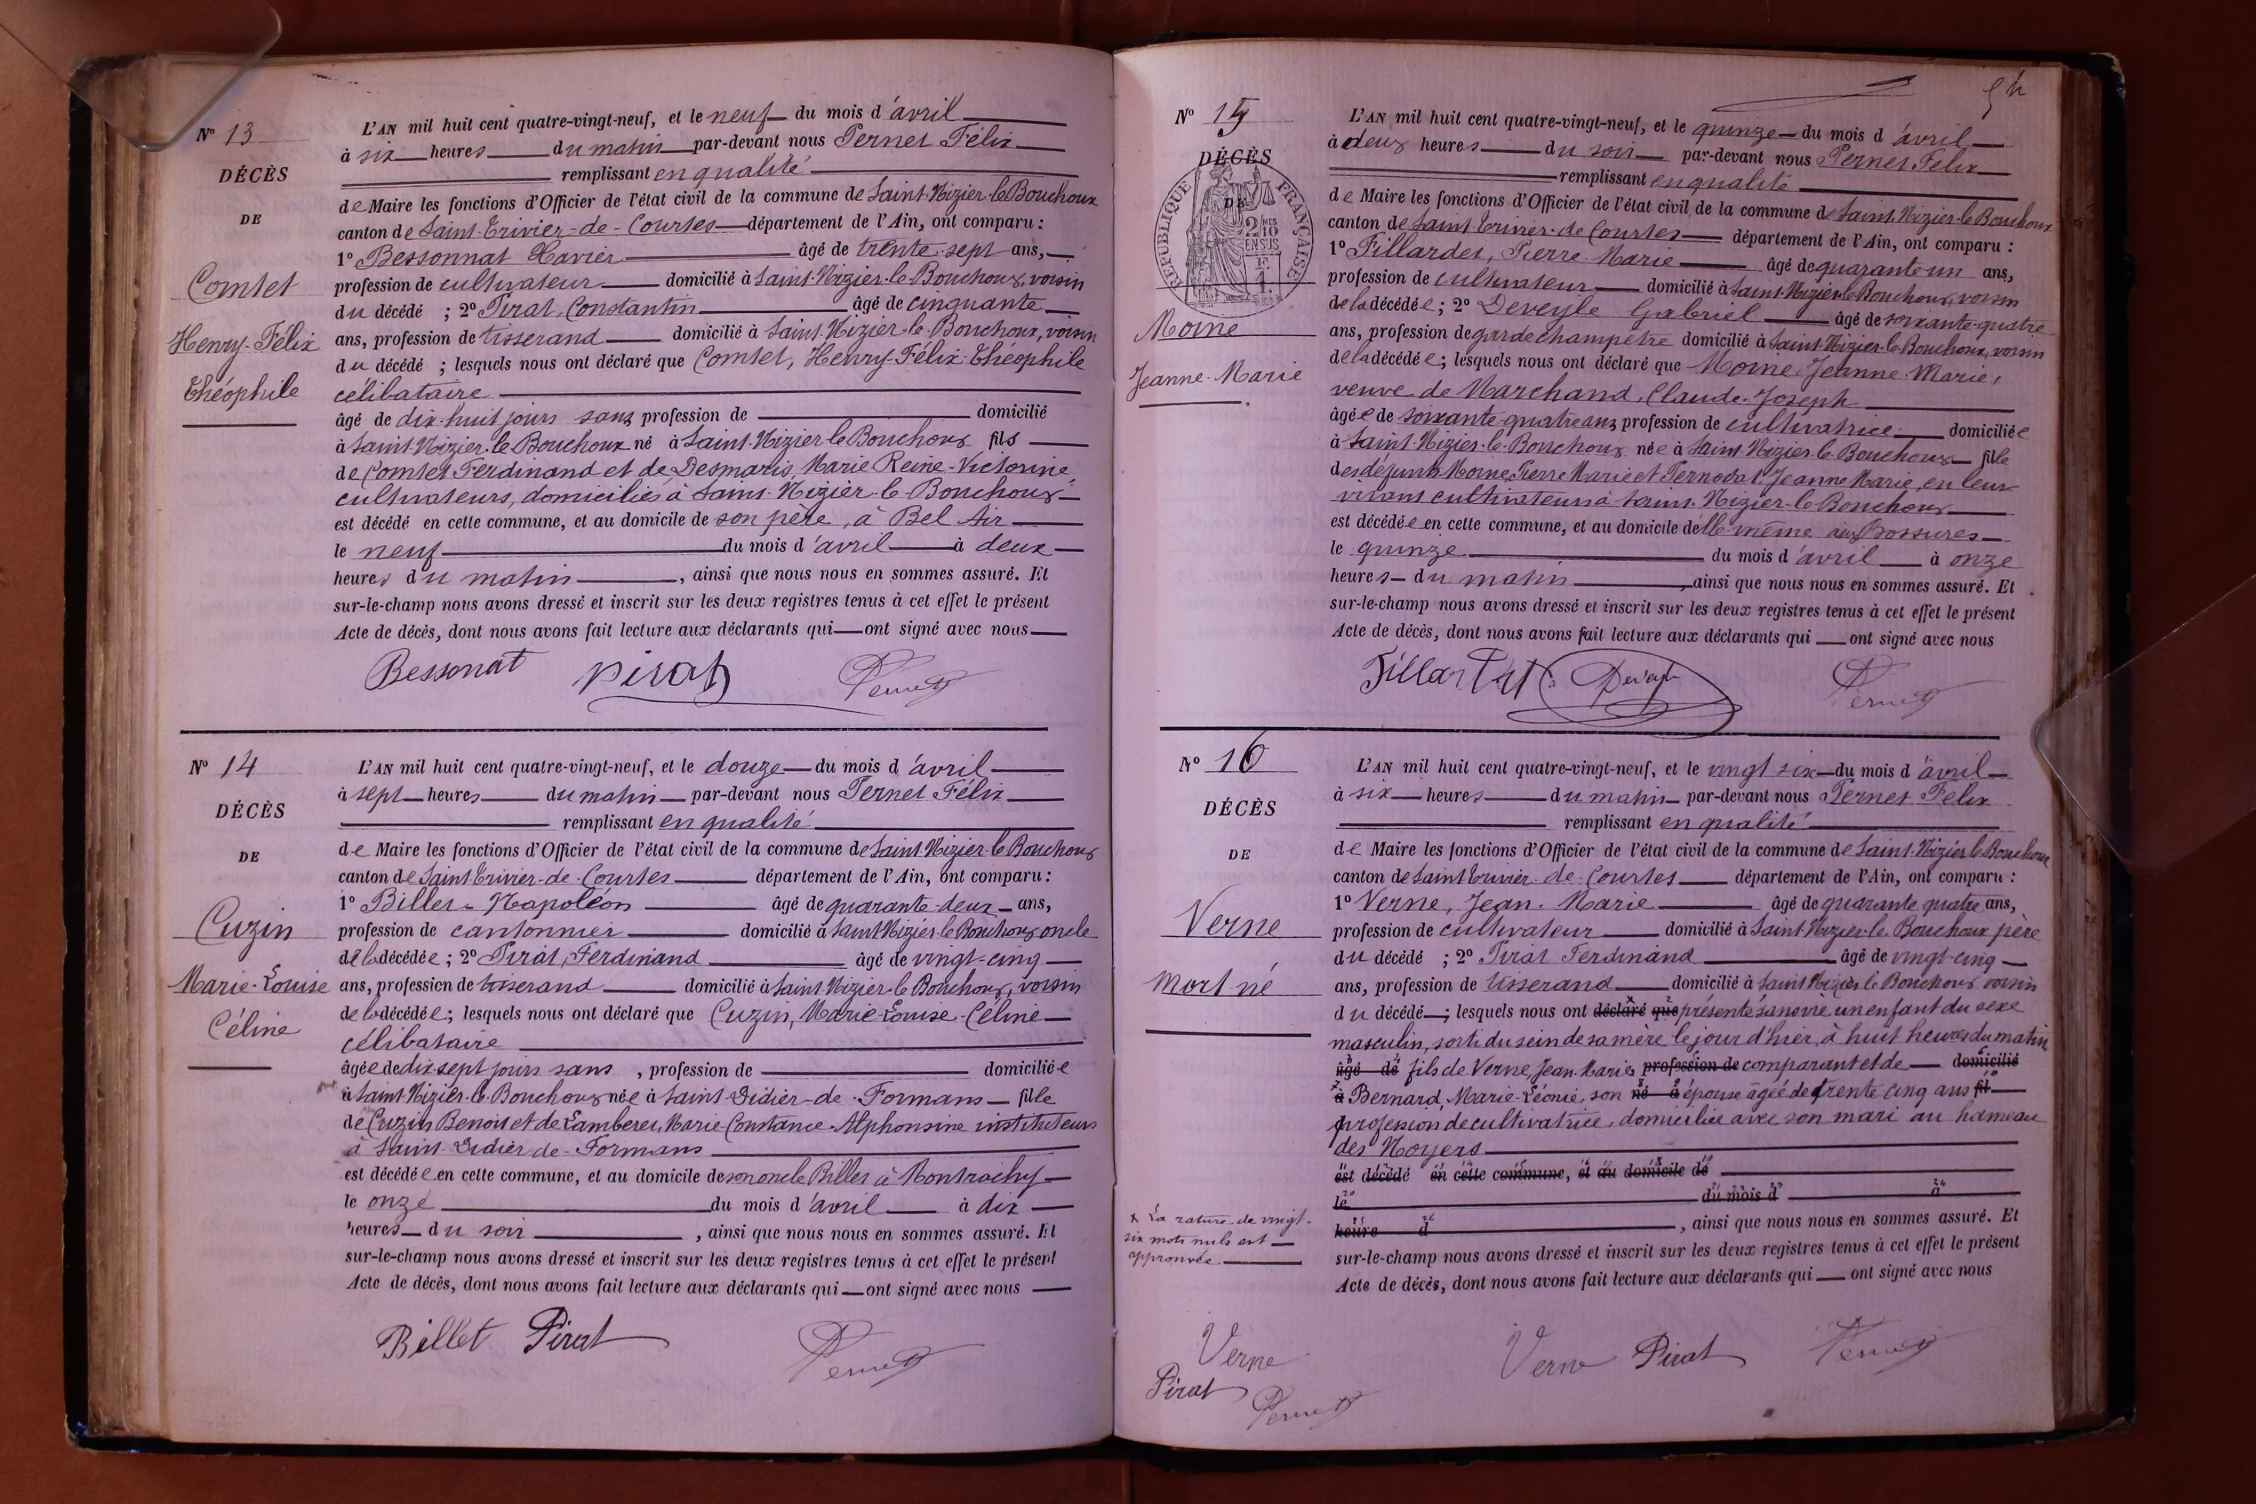 N° 13
DÉCÈS
DE
Comtet
Henry-Félix
Théophile
L'AN mil huit cent quatre-vingt-neuf, et le neuf du mois d'avril
à six heures du matin par-devant nous Pernet Félix
remplissant en qualité
de Maire les fonctions d'Officier de l'état civil de la commune de Saint-Nizier-le-Bouchoux
canton de Saint-Trivier-de-Courtes département de l'Ain, ont comparu :
1° Bessonnat Xavier âgé de trente-sept ans,
profession de cultivateur domicilié à Saint-Nizier-le-Bouchoux, voisin
du décédé ; 2° Pirat, Constantin âgé de cinquante
ans, profession de tisserand domicilié à Saint-Nizier-le-Bouchoux, voisin
du décédé ; lesquels nous ont déclaré que Comtet, Henry-Félix-Théophile
célibataire
âgé de dix-huit jours sans profession de domicilié
à Saint-Nizier-le-Bouchoux né à Saint-Nizier-le-Bouchoux fils
de Comtet Ferdinand et de Desmaris, Marie Reine-Victorine
cultivateurs, domiciliés à Saint-Nizier-le-Bouchoux
est décédé en cette commune, et au domicile de son père, à Bel Air
le neuf du mois d'avril à deux
heures du matin, ainsi que nous nous en sommes assuré. Et
sur-le-champ nous avons dressé et inscrit sur les deux registres tenus à cet effet le présent
Acte de décès, dont nous avons fait lecture aux déclarants qui ont signé avec nous
Bessonat Pirat Pernet
N° 14
DÉCÈS
DE
Cuzin
Marie-Louise
Céline
L'AN mil huit cent quatre-vingt-neuf, et le douze du mois d'avril
à sept heures du matin par-devant nous Pernet Félix
remplissant en qualité
de Maire les fonctions d'Officier de l'état civil de la commune de Saint-Nizier-le-Bouchoux
canton de Saint-Trivier-de-Courtes département de l'Ain, ont comparu :
1° Billet Napoléon âgé de quarante-deux ans,
profession de cantonnier domicilié à Saint-Nizier-le-Bouchoux oncle
de la décédée ; 2° Pirat, Ferdinand âgé de vingt-cinq
ans, profession de tisserand domicilié à Saint-Nizier-le-Bouchoux, voisin
de la décédée ; lesquels nous ont déclaré que Cuzin, Marie-Louise-Céline
célibataire
âgée de dix sept jours sans, profession de domiciliée
à Saint-Nizier-le-Bouchoux née à Saint-Didier-de-Formans fille
de Cuzin Benoit et de Lamberet, Marie-Constance-Alphonsine instituteurs
à Saint-Didier-de-Formans
est décédée en cette commune, et au domicile de son oncle Billet à Montrachy
le onze du mois d'avril à dix
heures du soir, ainsi que nous nous en sommes assuré. Et
sur-le-champ nous avons dressé et inscrit sur les deux registres tenus à cet effet le présent
Acte de décès, dont nous avons fait lecture aux déclarants qui ont signé avec nous
Billet Pirat Pernet
N° 15
DÉCÈS
DE
RÉPUBLIQUE FRANÇAISE
2/10
EN SUS
Moine
Jeanne-Marie
L'AN mil huit cent quatre-vingt-neuf, et le quinze du mois d'avril
à deux heures du soir par-devant nous Pernet Félix
remplissant en qualité
de Maire les fonctions d'Officier de l'état civil de la commune de Saint-Nizier-le-Bouchoux
canton de Saint-Trivier-de-Courtes département de l'Ain, ont comparu :
1° Fillardet, Pierre-Marie âgé de quarante un ans,
profession de cultivateur domicilié à Saint-Nizier-le-Bouchoux, voisin
de la décédée ; 2° Deveyle Gabriel âgé de soixante-quatre
ans, profession de garde champêtre domicilié à Saint-Nizier-le-Bouchoux, voisin
de la décédée ; lesquels nous ont déclaré que Moine Jeanne-Marie,
veuve de Marchand, Claude-Joseph
âgée de soixante-quatre ans profession de cultivatrice domiciliée
à Saint-Nizier-le-Bouchoux née à Saint-Nizier-le-Bouchoux fille
des défunts Moine, Pierre Marie et Pernodat Jeanne Marie, en leur
vivant cultivateurs à Saint-Nizier-le-Bouchoux
est décédée en cette commune, et au domicile d'elle-même aux Bossures
le quinze du mois d'avril à onze
heures du matin, ainsi que nous nous en sommes assuré. Et
sur-le-champ nous avons dressé et inscrit sur les deux registres tenus à cet effet le présent
Acte de décès, dont nous avons fait lecture aux déclarants qui ont signé avec nous
Fillardet Deveyle Pernet
N° 16
DÉCÈS
DE
Verne
Mort né
L'AN mil huit cent quatre-vingt-neuf, et le vingt six du mois d'avril
à six heures du matin par-devant nous Pernet Félix
remplissant en qualité
de Maire les fonctions d'Officier de l'état civil de la commune de Saint-Nizier-le-Bouchoux
canton de Saint-Trivier-de-Courtes département de l'Ain, ont comparu :
1° Verne, Jean-Marie âgé de quarante quatre ans,
profession de cultivateur domicilié à Saint-Nizier-le-Bouchoux père
du décédé ; 2° Pirat Ferdinand âgé de vingt-cinq
ans, profession de tisserand domicilié à Saint-Nizier-le-Bouchoux voisin
du décédé ; lesquels nous ont déclaré que présenté sans vie un enfant du sexe
masculin, sorti du sein de sa mère le jour d'hier, à huit heures du matin
âgé de fils de Verne, Jean-Marie profession de comparant et de domicilié
à Bernard, Marie-Léonie, son né à épouse âgée de trente cinq ans fil
profession de cultivatrice, domiciliée avec son mari au hameau
des Noyers
est décédé en cette commune, et au domicile de
le du mois d à
heure d, ainsi que nous nous en sommes assuré. Et
sur-le-champ nous avons dressé et inscrit sur les deux registres tenus à cet effet le présent
Acte de décès, dont nous avons fait lecture aux déclarants qui ont signé avec nous
x La rature de vingt-
six mots nuls est
approuvée.
Verne Pirat Pernet
Verne
Pirat
Pernet